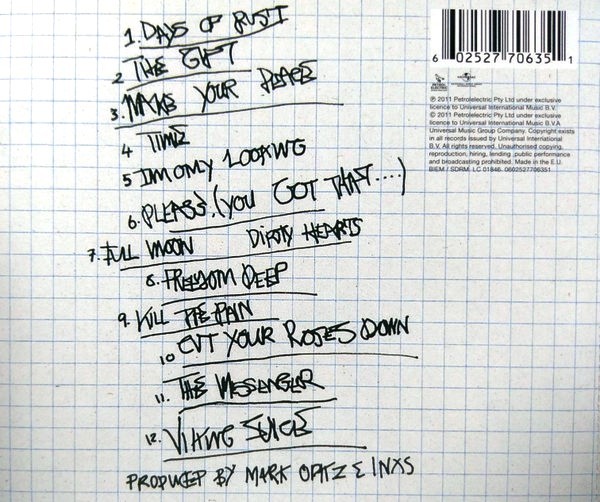 1. DAYS OF RUST
2 THE GIFT
3. MAKE YOUR PEACE
4 TIME
5 I'M ONLY LOOKING
6. PLEASE, (YOU GOT THAT....)
7. FULL MOON DIRTY HEARTS
8. FREEDOM DEEP
9. KILL THE PAIN
10 CUT YOUR ROSES DOWN
11. THE MESSENGER
12. VIKING JUICE
PRODUCED BY MARK OPITZ & INXS
6 02527 70635 1
PETROL ELECTRIC
UNIVERSAL
℗ 2011 Petrolelectric Pty Ltd under exclusive
licence to Universal International Music B.V.
© 2011 Petrolelectric Pty Ltd under exclusive
licence to Universal International Music B.V.A
Universal Music Group Company. Copyright exists
in all records issued by Universal International
B.V. All rights reserved. Unauthorised copying,
reproduction, hiring, lending ,public performance
and broadcasting prohibited. Made in the E.U.
BIEM / SDRM. LC 01846. 0602527706351